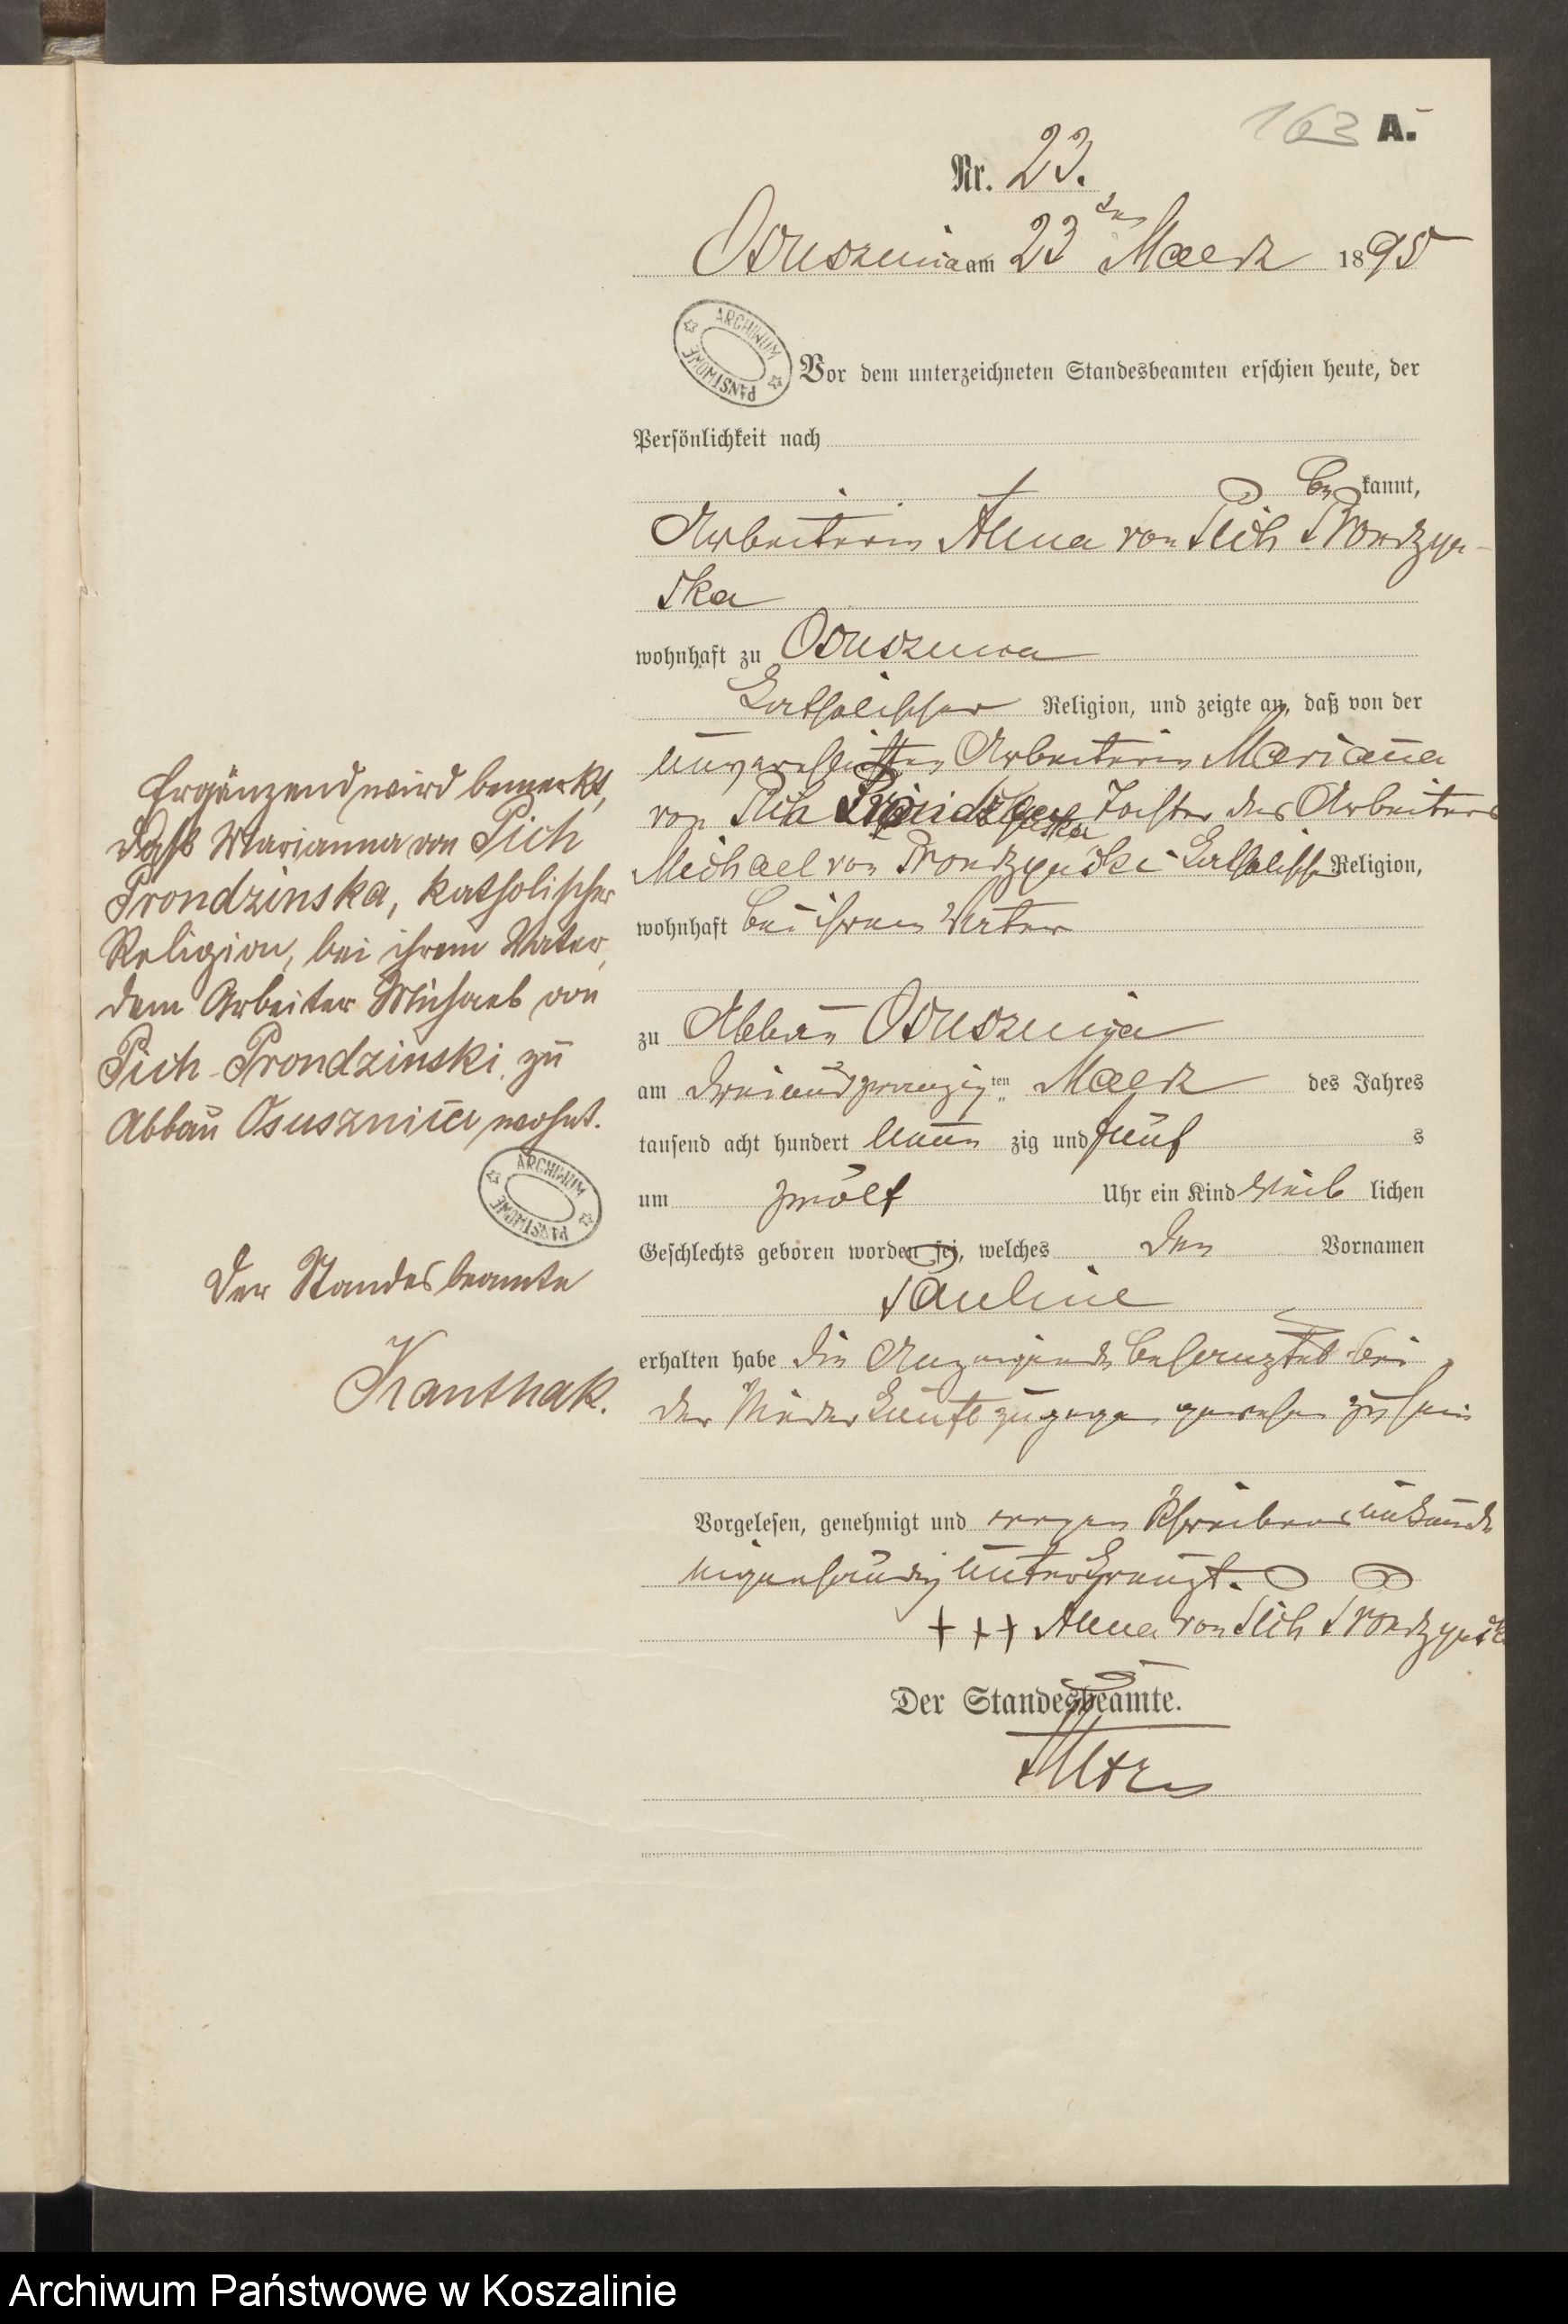 163 A.
Nr. 23.
Osuszniza am 23ten Maerz 1895
ARCHIWUM PAŃSTWOWE
Vor dem unterzeichneten Standesbeamten erschien heute, der
Persönlichkeit nach
be kannt,
Arbeiterin Anna von Pich Prondzyn-
ska
wohnhaft zu Osuszniza
Katholischer Religion, und zeigte an, daß von der
unverehlichten Arbeiterin Marianna
von Pich Tochter des Arbeiters
Michael von Prondzynski Katholische Religion,
wohnhaft bei ihrem Vater
zu Abbau Osuszniza
am dreiundzwanzig ten Maerz des Jahres
tausend acht hundert neun zig und fünf s
um zwölf Uhr ein Kind weib lichen
Geschlechts geboren worden sei, welches den Vornamen
Pauline
erhalten habe die Anzeigende bei
der Niederkunft zugegen gewesen zu sein
Vorgelesen, genehmigt und wegen Schreibensunkunde
eigenhändig unterkreuzt.
+++ Anna von Pich Prondzynska
Der Standesbeamte.
Ergänzend wird bemerkt,
daß Marianna von Pich
Prondzinska, katholischer
Religion, bei ihrem Vater,
dem Arbeiter Michael von
Pich-Prondzinski zu
Abbau Osusznica wohnt.
ARCHIWUM PAŃSTWOWE
Der Standesbeamte
Kanthak.
Archiwum Państwowe w Koszalinie